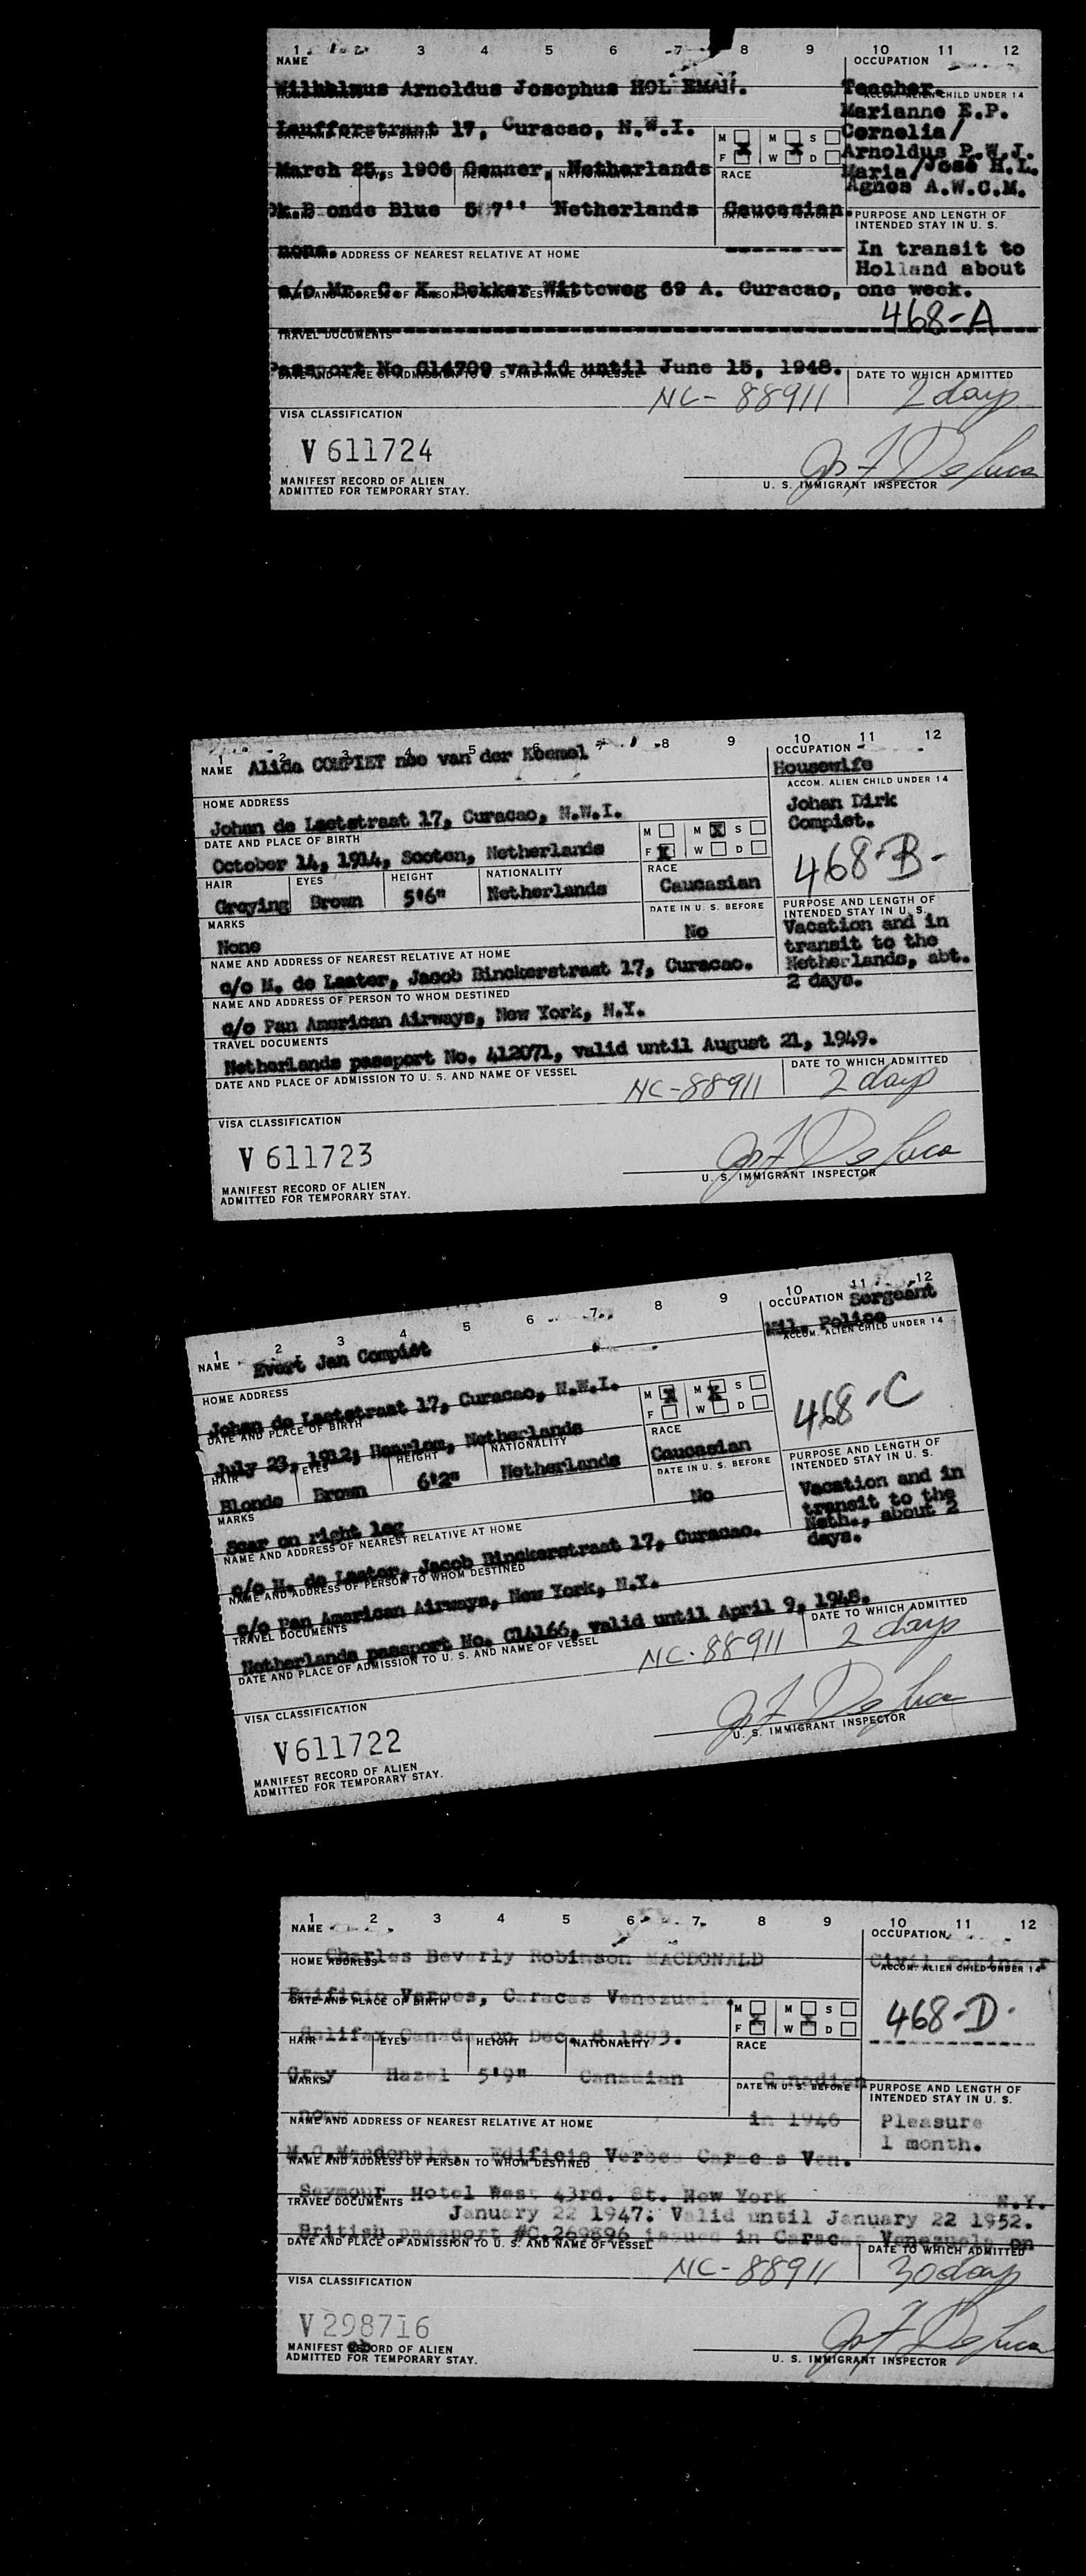 1 2 3 4 5 6 7 8 9 10 11 12
NAME OCCUPATION
Wilhelmus Arnoldus Josephus HOL EMAN. Teacher.
ACCOM. ALIEN CHILD UNDER 14
Marianne E.P.
17, Curacao, N.W.I. Cornelia/
DATE AND PLACE OF BIRTH M M S
F X W X D
Arnoldus P.W.J.
March 25, 1906 Netherlands RACE Maria/José H.L.
Agnes A.W.C.M.
Dk.B onde Blue 5 7'' Netherlands Caucasian.
PURPOSE AND LENGTH OF
INTENDED STAY IN U. S.
none. ---------- In transit to
ADDRESS OF NEAREST RELATIVE AT HOME Holland about
c/o Mr. C. K. Bekker Witteweg 69 A. Curacao, one week.
NAME AND ADDRESS OF PERSON TO WHOM DESTINED
468-A
TRAVEL DOCUMENTS
Passport No C14709 valid until June 15, 1948.
DATE AND PLACE OF ADMISSION TO U. S. AND NAME OF VESSEL DATE TO WHICH ADMITTED
NC- 88911 2 days
VISA CLASSIFICATION
V 611724
MANIFEST RECORD OF ALIEN
ADMITTED FOR TEMPORARY STAY.
U. S. IMMIGRANT INSPECTOR
1 2 3 4 5 6 7 8 9 10 11 12
NAME Alida COMPIET nee van der OCCUPATION
Housewife
HOME ADDRESS ACCOM. ALIEN CHILD UNDER 14
Johan de Laetstraat 17, Curacao, N.W.I. Johan Dirk
Compiet.
DATE AND PLACE OF BIRTH M M X S
F X W D
October 14, 1914, Scoten, Netherlands 468-B-
HAIR EYES HEIGHT NATIONALITY RACE
Greying Brown 5'6" Netherlands Caucasian
MARKS DATE IN U. S. BEFORE PURPOSE AND LENGTH OF
INTENDED STAY IN U. S.
None No Vacation and in
transit to the
Netherlands, abt.
2 days.
NAME AND ADDRESS OF NEAREST RELATIVE AT HOME
c/o M. de Laater, Jacob Binckerstraat 17, Curacao.
NAME AND ADDRESS OF PERSON TO WHOM DESTINED
c/o Pan American Airways, New York, N.Y.
TRAVEL DOCUMENTS
Netherlands passport No. 412071, valid until August 21, 1949.
DATE AND PLACE OF ADMISSION TO U. S. AND NAME OF VESSEL DATE TO WHICH ADMITTED
NC-88911 2 days
VISA CLASSIFICATION
V 611723
MANIFEST RECORD OF ALIEN
ADMITTED FOR TEMPORARY STAY.
U. S. IMMIGRANT INSPECTOR
1 2 3 4 5 6 7 8 9 10 11 12
NAME Evert Jan Compiet OCCUPATION Sergeant
Mil. Police
HOME ADDRESS ACCOM. ALIEN CHILD UNDER 14
Johan de Laetstraat 17, Curacao, N.W.I.
DATE AND PLACE OF BIRTH M X M X S
F W D
468-C
July 23, 1912, Haarlem, Netherlands
HAIR EYES HEIGHT NATIONALITY RACE
Blonde Brown 6'2" Netherlands Caucasian
MARKS DATE IN U. S. BEFORE PURPOSE AND LENGTH OF
INTENDED STAY IN U. S.
Scar on right leg No Vacation and in
transit to the
Neth., about 2
days.
NAME AND ADDRESS OF NEAREST RELATIVE AT HOME
c/o M. de Laater, Jacob Binckerstraat 17, Curacao.
NAME AND ADDRESS OF PERSON TO WHOM DESTINED
c/o Pan American Airways, New York, N.Y.
TRAVEL DOCUMENTS
Netherlands passport No. C1A166, valid until April 9, 1948.
DATE AND PLACE OF ADMISSION TO U. S. AND NAME OF VESSEL DATE TO WHICH ADMITTED
NC-88911 2 days
VISA CLASSIFICATION
V611722
MANIFEST RECORD OF ALIEN
ADMITTED FOR TEMPORARY STAY.
U. S. IMMIGRANT INSPECTOR
1 2 3 4 5 6 7 8 9 10 11 12
NAME OCCUPATION
Charles Beverly Robinson MACDONALD Civil Engineer
HOME ADDRESS ACCOM. ALIEN CHILD UNDER 14
Edificio Veroes, Caracas Venezuela.
DATE AND PLACE OF BIRTH M M S
F X W X D
468-D-
Halifax Canada on Dec. 1893.
HAIR EYES HEIGHT NATIONALITY RACE
Gray Hazel 5'9" Canadian Canadian
MARKS DATE IN U. S. BEFORE PURPOSE AND LENGTH OF
INTENDED STAY IN U. S.
none in 1946 Pleasure
1 month.
NAME AND ADDRESS OF NEAREST RELATIVE AT HOME
M.C.Macdonald. Edificio Veroes Caracas Ven.
NAME AND ADDRESS OF PERSON TO WHOM DESTINED
Seymour Hotel West 43rd. St. New York N.Y.
TRAVEL DOCUMENTS
January 22 1947. Valid until January 22 1952.
British passport #C.269896 issued in Caracas Venezuela on
DATE AND PLACE OF ADMISSION TO U. S. AND NAME OF VESSEL DATE TO WHICH ADMITTED
NC-88911 30 days
VISA CLASSIFICATION
V 298716
MANIFEST RECORD OF ALIEN
ADMITTED FOR TEMPORARY STAY.
U. S. IMMIGRANT INSPECTOR